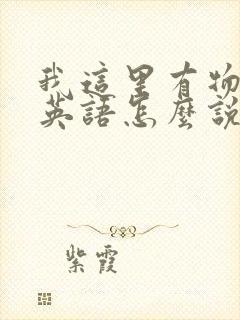 我這里有物
英語怎麼說
紫霞